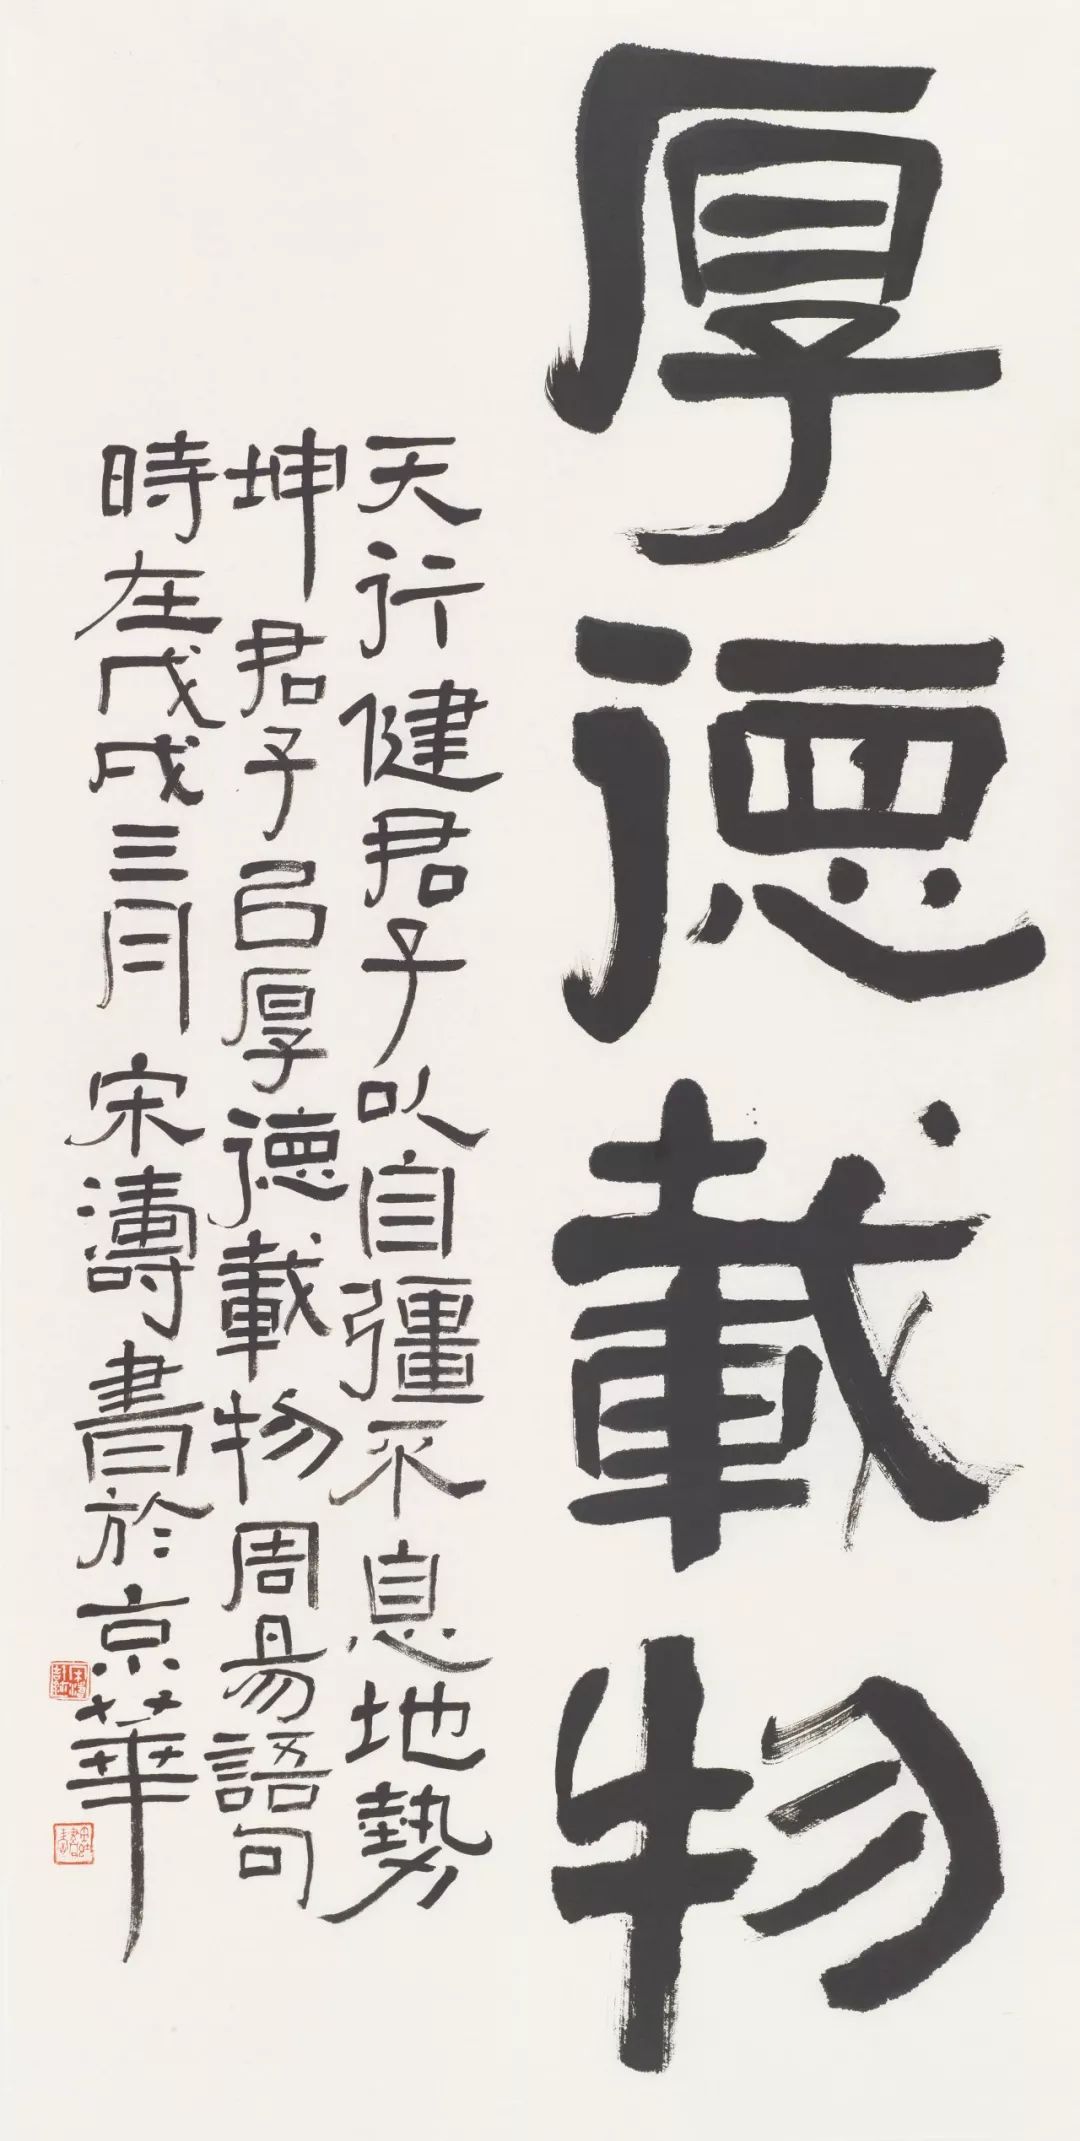 厚德載物
天行健君子以自彊不息地勢
坤君子㠯厚德載物周易語句
時在戊戌三月宋濤書於京華